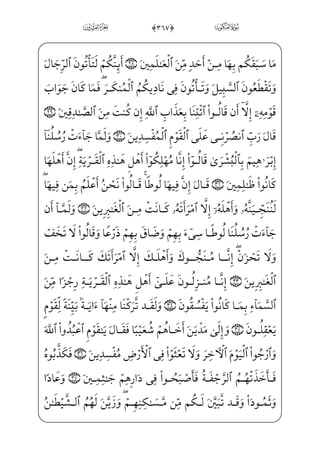 الجزء العشرون ﴿٣٦٧﴾ سورة العنكبوت
مَا سَبَقَكُم بِهَا مِنْ أَحَدٍ مِّنَ ٱلْعَـٰلَمِينَ ۝٢٨ أَئِنَّكُمْ لَتَأْتُونَ ٱلرِّجَالَ
وَتَقْطَعُونَ ٱلسَّبِيلَ وَتَأْتُونَ فِى نَادِيكُمُ ٱلْمُنكَرَ ۖ فَمَا كَانَ جَوَابَ
قَوْمِهِۦٓ إِلَّآ أَن قَالُوا۟ ٱئْتِنَا بِعَذَابِ ٱللَّهِ إِن كُنتَ مِنَ ٱلصَّـٰدِقِينَ ۝٢٩
قَالَ رَبِّ ٱنصُرْنِى عَلَى ٱلْقَوْمِ ٱلْمُفْسِدِينَ ۝٣٠ وَلَمَّا جَآءَتْ رُسُلُنَآ
إِبْرَٰهِيمَ بِٱلْبُشْرَىٰ قَالُوٓا۟ إِنَّا مُهْلِكُوٓا۟ أَهْلِ هَـٰذِهِ ٱلْقَرْيَةِ ۖ إِنَّ أَهْلَهَا
كَانُوا۟ ظَـٰلِمِينَ ۝٣١ قَالَ إِنَّ فِيهَا لُوطًا ۚ قَالُوا۟ نَحْنُ أَعْلَمُ بِمَن فِيهَا ۖ
لَنُنَجِّيَنَّهُۥ وَأَهْلَهُۥٓ إِلَّا ٱمْرَأَتَهُۥ كَانَتْ مِنَ ٱلْغَـٰبِرِينَ ۝٣٢ وَلَمَّآ أَن
جَآءَتْ رُسُلُنَا لُوطًا سِىٓءَ بِهِمْ وَضَاقَ بِهِمْ ذَرْعًا وَقَالُوا۟ لَا تَخَفْ
وَلَا تَحْزَنْ ۖ إِنَّا مُنَجُّوكَ وَأَهْلَكَ إِلَّا ٱمْرَأَتَكَ كَانَتْ مِنَ
ٱلْغَـٰبِرِينَ ۝٣٣ إِنَّا مُنزِلُونَ عَلَىٰٓ أَهْلِ هَـٰذِهِ ٱلْقَرْيَةِ رِجْزًا مِّنَ
ٱلسَّمَآءِ بِمَا كَانُوا۟ يَفْسُقُونَ ۝٣٤ وَلَقَد تَّرَكْنَا مِنْهَآ ءَايَةًۢ بَيِّنَةً لِّقَوْمٍ
يَعْقِلُونَ ۝٣٥ وَإِلَىٰ مَدْيَنَ أَخَاهُمْ شُعَيْبًا فَقَالَ يَـٰقَوْمِ ٱعْبُدُوا۟ ٱللَّهَ
وَٱرْجُوا۟ ٱلْيَوْمَ ٱلْـَٔاخِرَ وَلَا تَعْثَوْا۟ فِى ٱلْأَرْضِ مُفْسِدِينَ ۝٣٦ فَكَذَّبُوهُ
فَأَخَذَتْهُمُ ٱلرَّجْفَةُ فَأَصْبَحُوا۟ فِى دَارِهِمْ جَـٰثِمِينَ ۝٣٧ وَعَادًا
وَثَمُودَا۟ وَقَد تَّبَيَّنَ لَكُم مِّن مَّسَـٰكِنِهِمْ ۖ وَزَيَّنَ لَهُمُ ٱلشَّيْطَـٰنُ